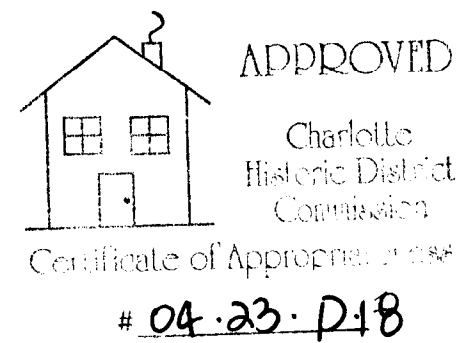 APPROVED
Charlotte
Historic District
Commission
Certificate of Appropriateness
# 04.23.D.18